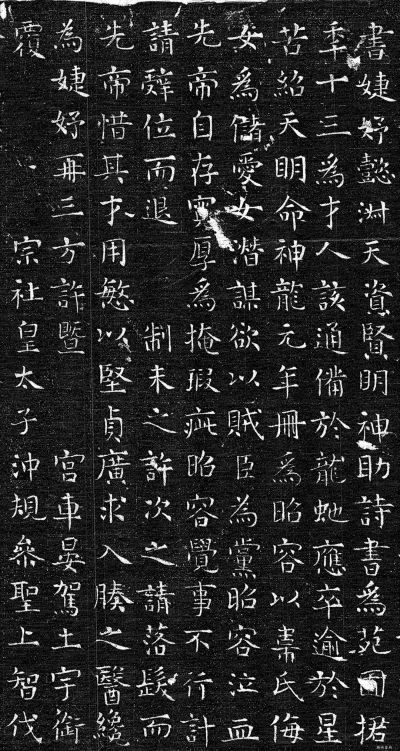 書婕妤懿淑天資賢明神助詩書為苑囿捃
年十三為才人該通備於龍虵應卒逾於星
苦紹天明命神龍元年冊為昭容以韋氏侮
女為儲愛女潛謀欲以賊臣為黨昭容泣血
先帝自存寬厚為掩瑕疵昭容覺事不行計
請辭位而退 制未之許次之請落髮而
先帝惜其才用慜以堅貞廣求入腠之醫纔
為婕妤再三方許暨 宮車晏駕土宇銜
覆 宗社皇太子沖規叅聖上智伐